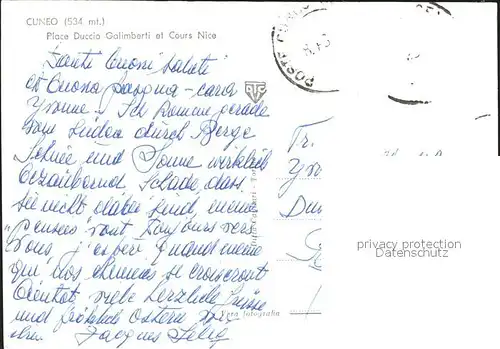 CUNEO (534 mt.)
Place Duccio Galimberti et Cours Nice
Tanti buoni saluti
et buona pasqua - cara
Yvonne - Ich komme gerade
durch Berge
Schnee und Sonne wirklich
bezaubernd. Schade, dass
sie nicht dabei sind, meine
"pensées" vont toujours vers
vous, j'espère quand même
que nos chemins se croiseront
bientôt, viele herzliche Grüsse
und fröhliche Ostern
Ihr Jacques
Fr.
POSTE
Vera fotografia
privacy protection
Datenschutz